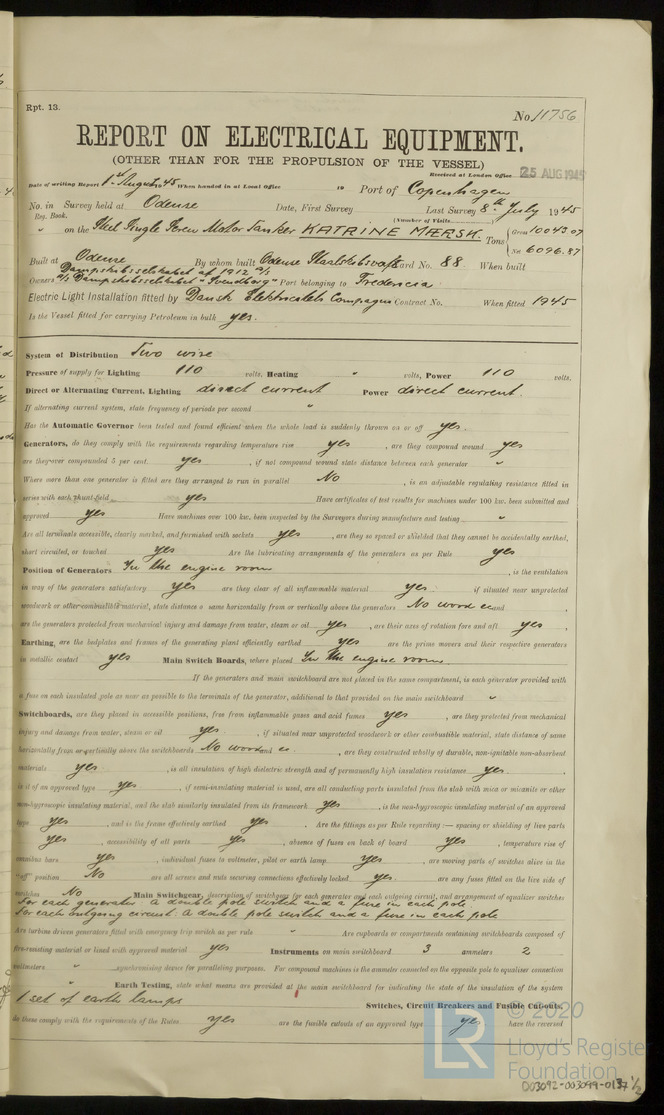 Rpt. 13.
No. 11756
REPORT ON ELECTRICAL EQUIPMENT.
(OTHER THAN FOR THE PROPULSION OF THE VESSEL)
Received at London Office 25 AUG 1945
Date of writing Report 1st August 1945 When handed in at Local Office 19 Port of Copenhagen
No. in Survey held at Odense Date, First Survey Last Survey 8th July 1945
Reg. Book. (Number of Visits
" on the Steel Single Screw Motor Tanker KATRINE MÆRSK. Tons { Gross 10043.07
Net 6096.87
Built at Odense By whom built Odense Staalskibsværft Yard No. 88. When built
Dampskibsselskabet af 1912 A/S
Owners A/S Dampskibsselskabet "Svendborg" Port belonging to Fredericia
Electric Light Installation fitted by Dansk Elektricitets Compagni Contract No. When fitted 1945
Is the Vessel fitted for carrying Petroleum in bulk yes.
System of Distribution Two wire
Pressure of supply for Lighting 110 volts, Heating " volts, Power 110 volts.
Direct or Alternating Current, Lighting direct current Power direct current.
If alternating current system, state frequency of periods per second "
Has the Automatic Governor been tested and found efficient when the whole load is suddenly thrown on or off yes.
Generators, do they comply with the requirements regarding temperature rise yes, are they compound wound yes
are they over compounded 5 per cent. yes, if not compound wound state distance between each generator "
Where more than one generator is fitted are they arranged to run in parallel No, is an adjustable regulating resistance fitted in
series with each shunt field yes Have certificates of test results for machines under 100 kw. been submitted and
approved yes Have machines over 100 kw. been inspected by the Surveyors during manufacture and testing "
Are all terminals accessible, clearly marked, and furnished with sockets yes, are they so spaced or shielded that they cannot be accidentally earthed,
short circuited, or touched yes Are the lubricating arrangements of the generators as per Rule yes
Position of Generators In the engine room, is the ventilation
in way of the generators satisfactory yes are they clear of all inflammable material yes. if situated near unprotected
woodwork or other combustible material, state distance of same horizontally from or vertically above the generators No wood and,
are the generators protected from mechanical injury and damage from water, steam or oil yes, are their axes of rotation fore and aft yes,
Earthing, are the bedplates and frames of the generating plant efficiently earthed yes are the prime movers and their respective generators
in metallic contact yes Main Switch Boards, where placed In the engine room.
If the generators and main switchboard are not placed in the same compartment, is each generator provided with
a fuse on each insulated pole as near as possible to the terminals of the generator, additional to that provided on the main switchboard "
Switchboards, are they placed in accessible positions, free from inflammable gases and acid fumes yes, are they protected from mechanical
injury and damage from water, steam or oil yes., if situated near unprotected woodwork or other combustible material, state distance of same
horizontally from or vertically above the switchboards No wood and, are they constructed wholly of durable, non-ignitable non-absorbent
materials yes., is all insulation of high dielectric strength and of permanently high insulation resistance yes.,
is it of an approved type yes, if semi-insulating material is used, are all conducting parts insulated from the slab with mica or micanite or other
non-hygroscopic insulating material, and the slab similarly insulated from its framework yes, is the non-hygroscopic insulating material of an approved
type yes, and is the frame effectively earthed yes. Are the fittings as per Rule regarding:— spacing or shielding of live parts
yes, accessibility of all parts yes, absence of fuses on back of board yes, temperature rise of
omnibus bars yes, individual fuses to voltmeter, pilot or earth lamp yes, are moving parts of switches alive in the
"off" position No are all screws and nuts securing connections effectively locked yes. are any fuses fitted on the live side of
switches No Main Switchgear, description of switchgear for each generator and each outgoing circuit, and arrangement of equalizer switches
For each generator: A double pole switch and a fuse in each pole
For each outgoing circuit: A double pole switch and a fuse in each pole
Are turbine driven generators fitted with emergency trip switch as per rule " Are cupboards or compartments containing switchboards composed of
fire-resisting material or lined with approved material yes Instruments on main switchboard 3 ammeters 2
voltmeters " synchronising device for paralleling purposes. For compound machines is the ammeter connected on the opposite pole to equaliser connection
" Earth Testing, state what means are provided at the main switchboard for indicating the state of the insulation of the system
1 set of earth lamps Switches, Circuit Breakers and Fusible Cutouts,
do these comply with the requirements of the Rules yes are the fusible cutouts of an approved type yes have the reversed
© 2020
LR Lloyd's Register
Foundation
003092-003099-0137 1/2